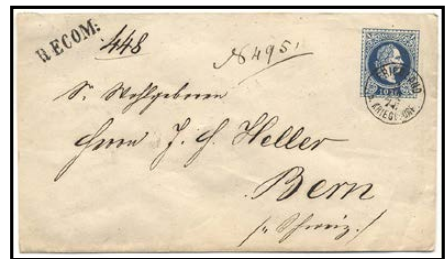 RECOM:
448
N 495
Sr Wohlgeboren
Herrn J. H. Heller
Bern
/: Schweiz. /